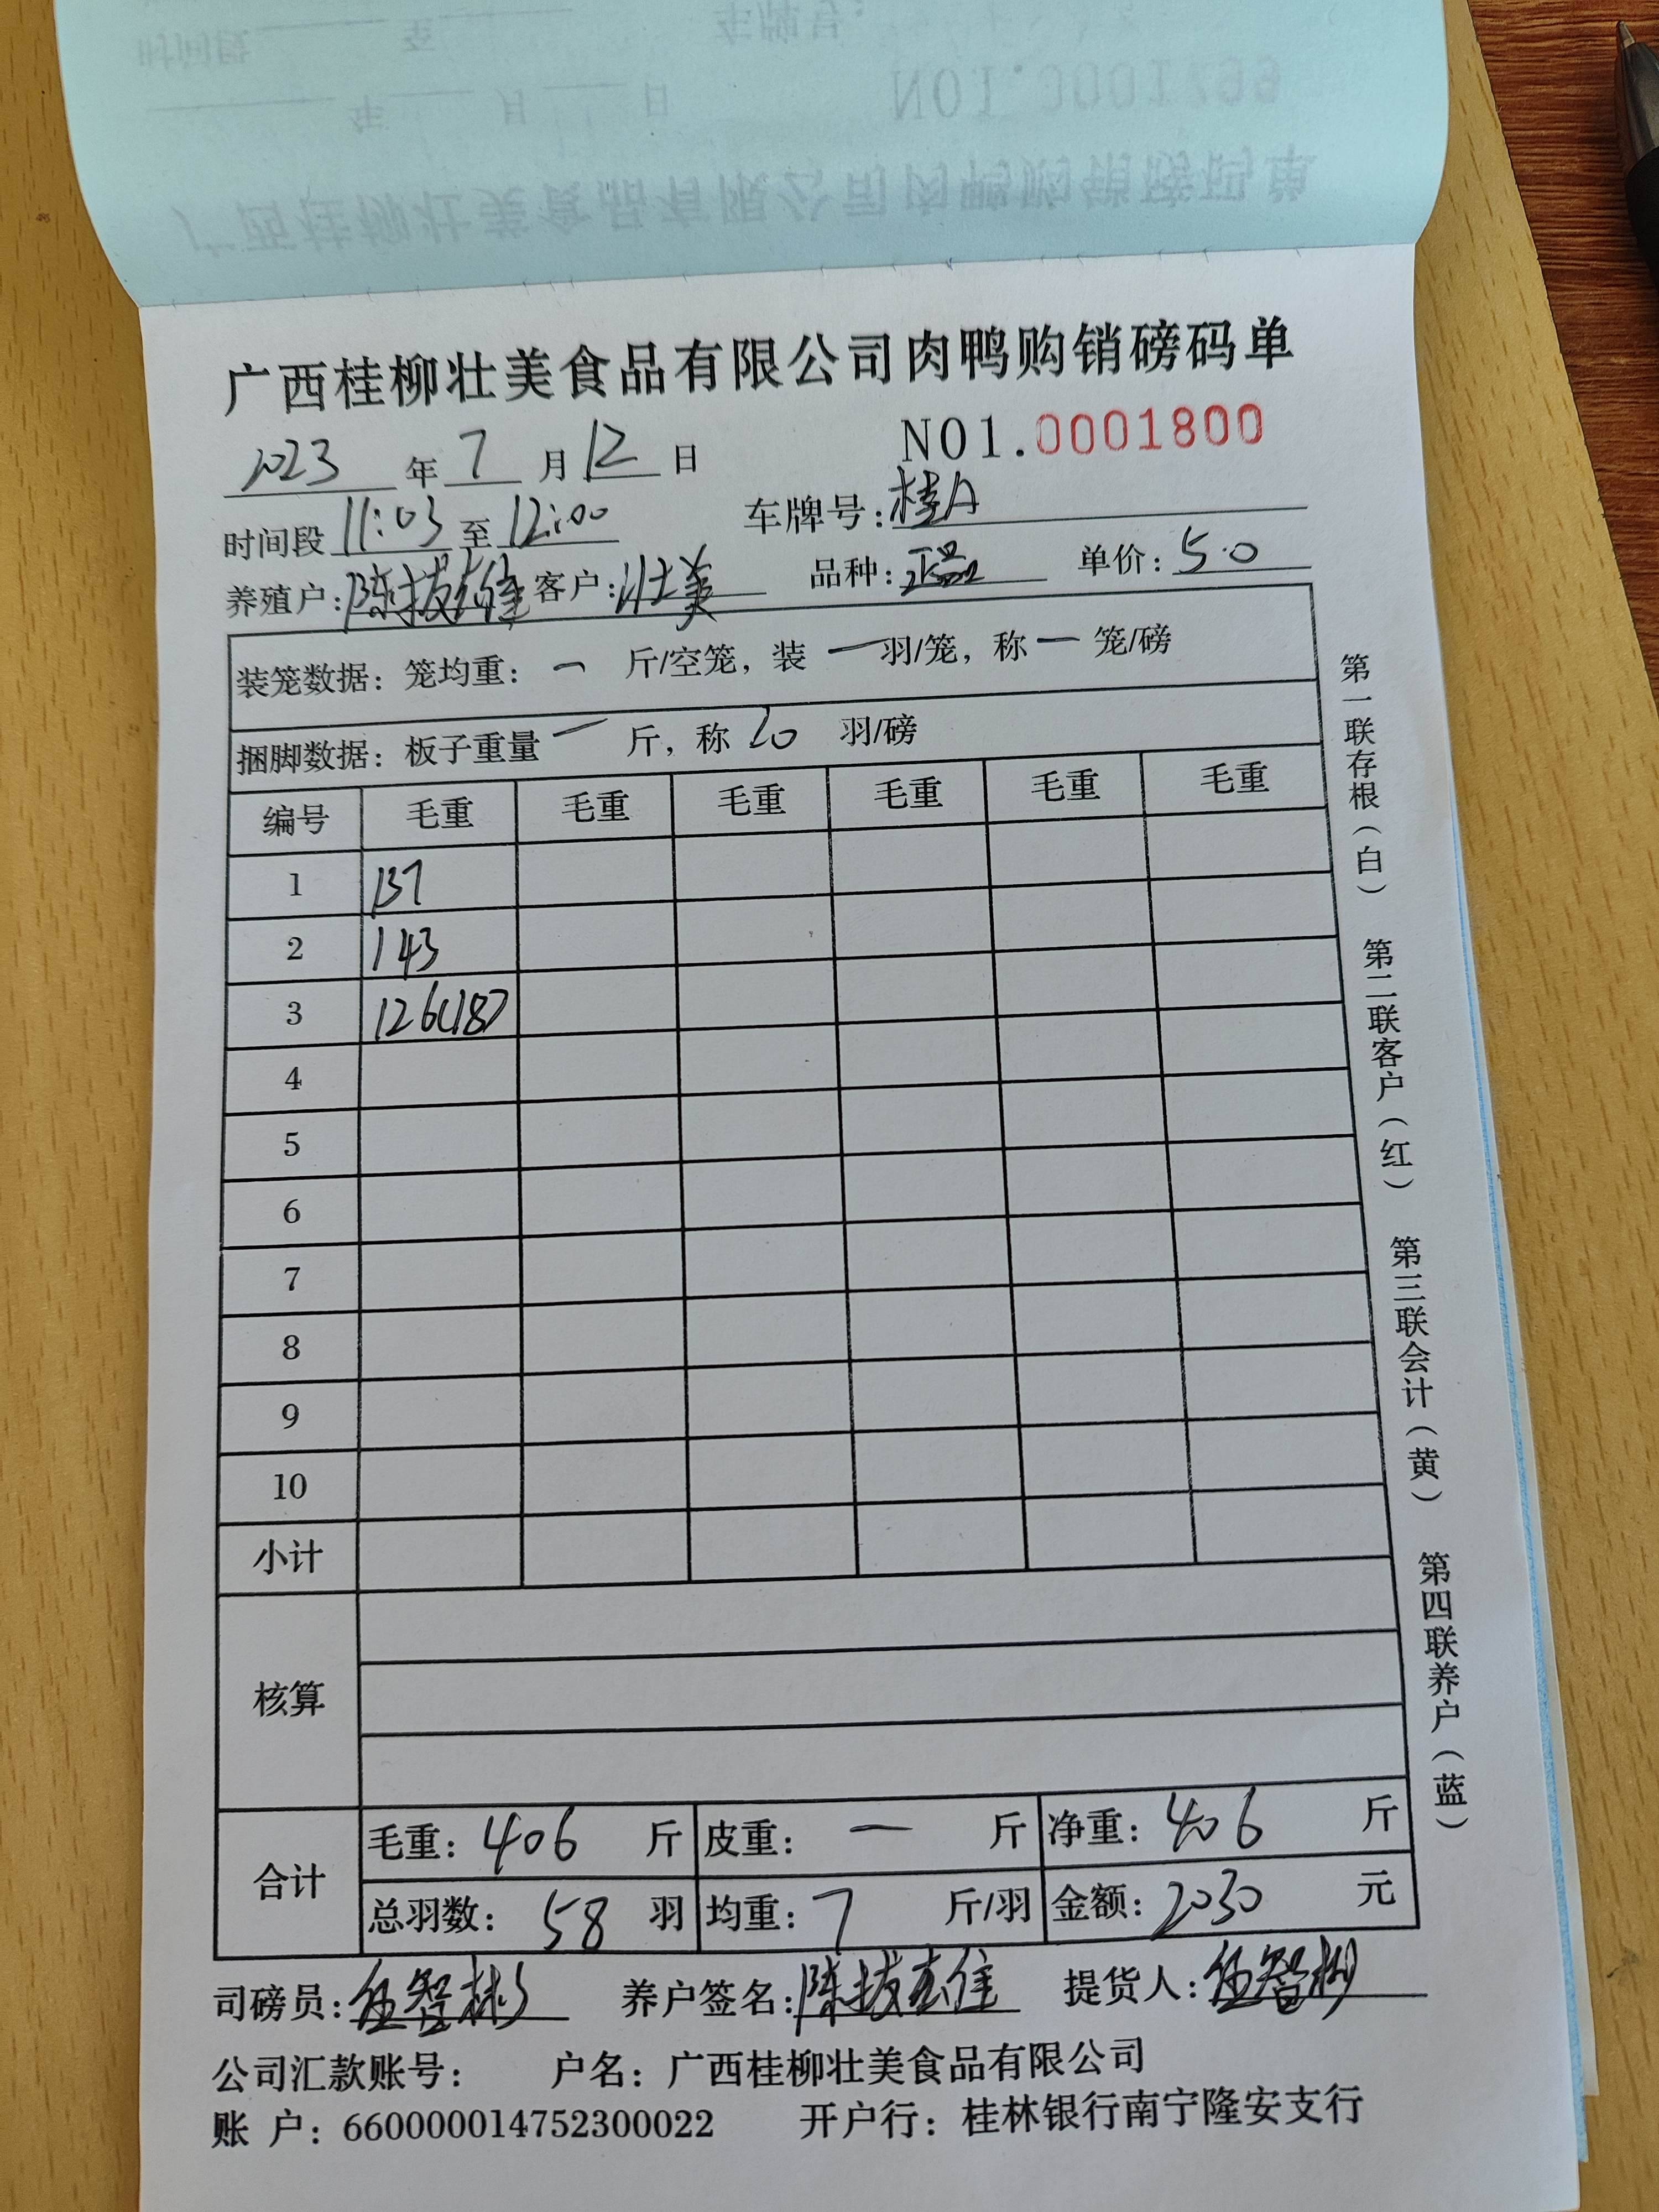 广西桂柳壮美食品有限公司肉鸭购销磅码单
2023 年 7 月 12 日 NO1.0001800
时间段 11:03 至 12:00 车牌号: 桂A
养殖户: 陈拔佳 客户: 壮美 品种: 正品 单价: 5.0
装笼数据: 笼均重: 一 斤/空笼, 装 一 羽/笼, 称 一 笼/磅
捆脚数据: 板子重量 一 斤, 称 20 羽/磅
编号 毛重 毛重 毛重 毛重 毛重 毛重
1 137
2 143
3 126(18)
4
5
6
7
8
9
10
小计
核算
合计
毛重: 406 斤 皮重: 一 斤 净重: 406 斤
总羽数: 58 羽 均重: 7 斤/羽 金额: 2030 元
司磅员: 伍智彬 养户签名: 陈拔 佳 提货人: 伍智彬
公司汇款账号: 户名: 广西桂柳壮美食品有限公司
账 户: 660000014752300022 开户行: 桂林银行南宁隆安支行
第一联存根(白) 第二联客户(红) 第三联会计(黄) 第四联养户(蓝)